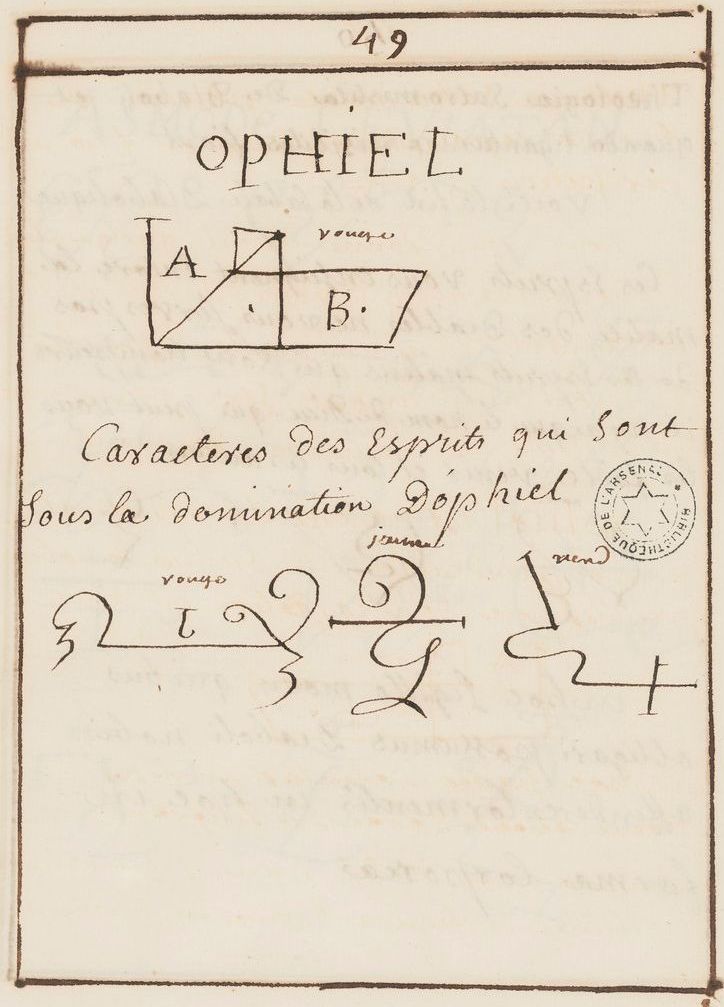 49
OPHIEL
A
rouge
B
Caracteres des Esprits qui sont
sous la domination Dóphiel
BIBLIOTHÈQUE DE L'ARSENAL
jaune
rouge
verd
I